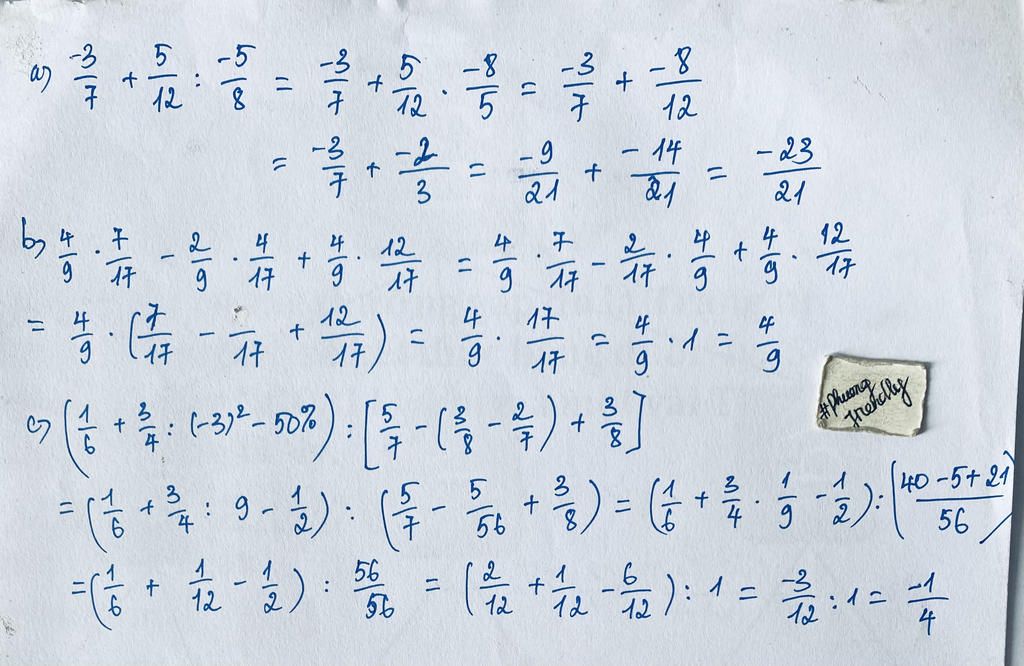 a) -3/7 + 5/12 : -5/8 = -3/7 + 5/12 . -8/5 = -3/7 + -8/12
= -3/7 + -2/3 = -9/21 + -14/21 = -23/21
b) 4/9 . 7/17 - 2/9 . 4/17 + 4/9 . 12/17 = 4/9 . 7/17 - 2/17 . 4/9 + 4/9 . 12/17
= 4/9 . (7/17 - /17 + 12/17) = 4/9 . 17/17 = 4/9 . 1 = 4/9
c) (1/6 + 3/4 : (-3)² - 50%) : [5/7 - (3/8 - 2/7) + 3/8]
= (1/6 + 3/4 : 9 - 1/2) : (5/7 - 5/56 + 3/8) = (1/6 + 3/4 . 1/9 - 1/2) : (40 - 5 + 21/56)
= (1/6 + 1/12 - 1/2) : 56/56 = (2/12 + 1/12 - 6/12) : 1 = -3/12 : 1 = -1/4
#phuong
friendly